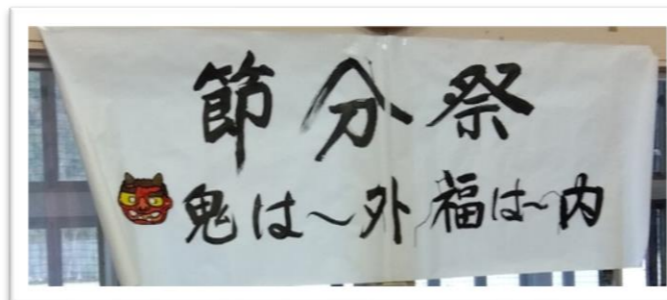 節分祭
鬼は〜外 福は〜内